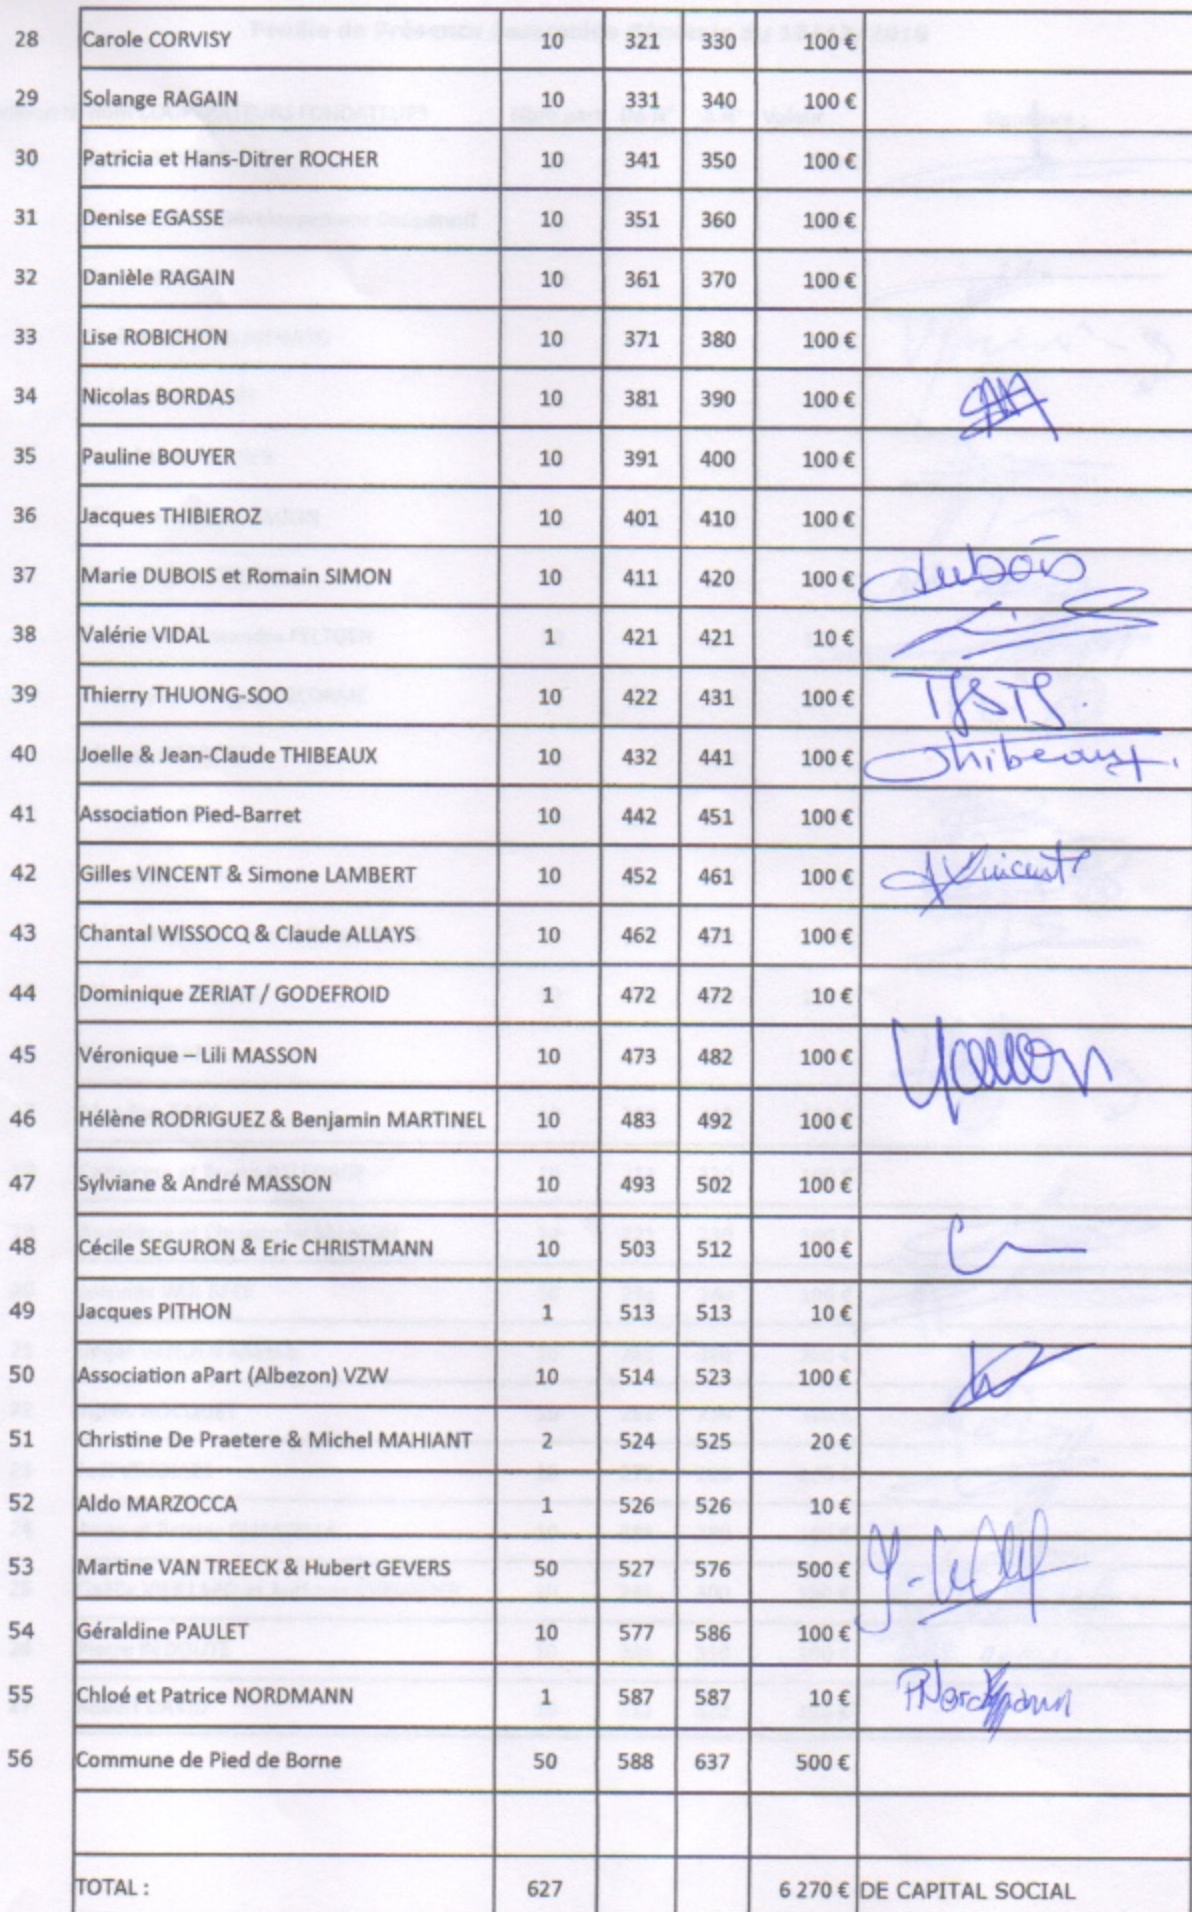 28 Carole CORVISY 10 321 330 100 €
29 Solange RAGAIN 10 331 340 100 €
30 Patricia et Hans-Ditrer ROCHER 10 341 350 100 €
31 Denise EGASSE 10 351 360 100 €
32 Danièle RAGAIN 10 361 370 100 €
33 Lise ROBICHON 10 371 380 100 €
34 Nicolas BORDAS 10 381 390 100 €
35 Pauline BOUYER 10 391 400 100 €
36 Jacques THIBIEROZ 10 401 410 100 €
37 Marie DUBOIS et Romain SIMON 10 411 420 100 € Dubois
38 Valérie VIDAL 1 421 421 10 €
39 Thierry THUONG-SOO 10 422 431 100 €
40 Joelle & Jean-Claude THIBEAUX 10 432 441 100 € Thibeaux.
41 Association Pied-Barret 10 442 451 100 €
42 Gilles VINCENT & Simone LAMBERT 10 452 461 100 € Vincent
43 Chantal WISSOCQ & Claude ALLAYS 10 462 471 100 €
44 Dominique ZERIAT / GODEFROID 1 472 472 10 €
45 Véronique – Lili MASSON 10 473 482 100 €
46 Hélène RODRIGUEZ & Benjamin MARTINEL 10 483 492 100 €
47 Sylviane & André MASSON 10 493 502 100 €
48 Cécile SEGURON & Eric CHRISTMANN 10 503 512 100 €
49 Jacques PITHON 1 513 513 10 €
50 Association aPart (Albezon) VZW 10 514 523 100 €
51 Christine De Praetere & Michel MAHIANT 2 524 525 20 €
52 Aldo MARZOCCA 1 526 526 10 €
53 Martine VAN TREECK & Hubert GEVERS 50 527 576 500 €
54 Géraldine PAULET 10 577 586 100 €
55 Chloé et Patrice NORDMANN 1 587 587 10 €
56 Commune de Pied de Borne 50 588 637 500 €
TOTAL : 627 6 270 € DE CAPITAL SOCIAL